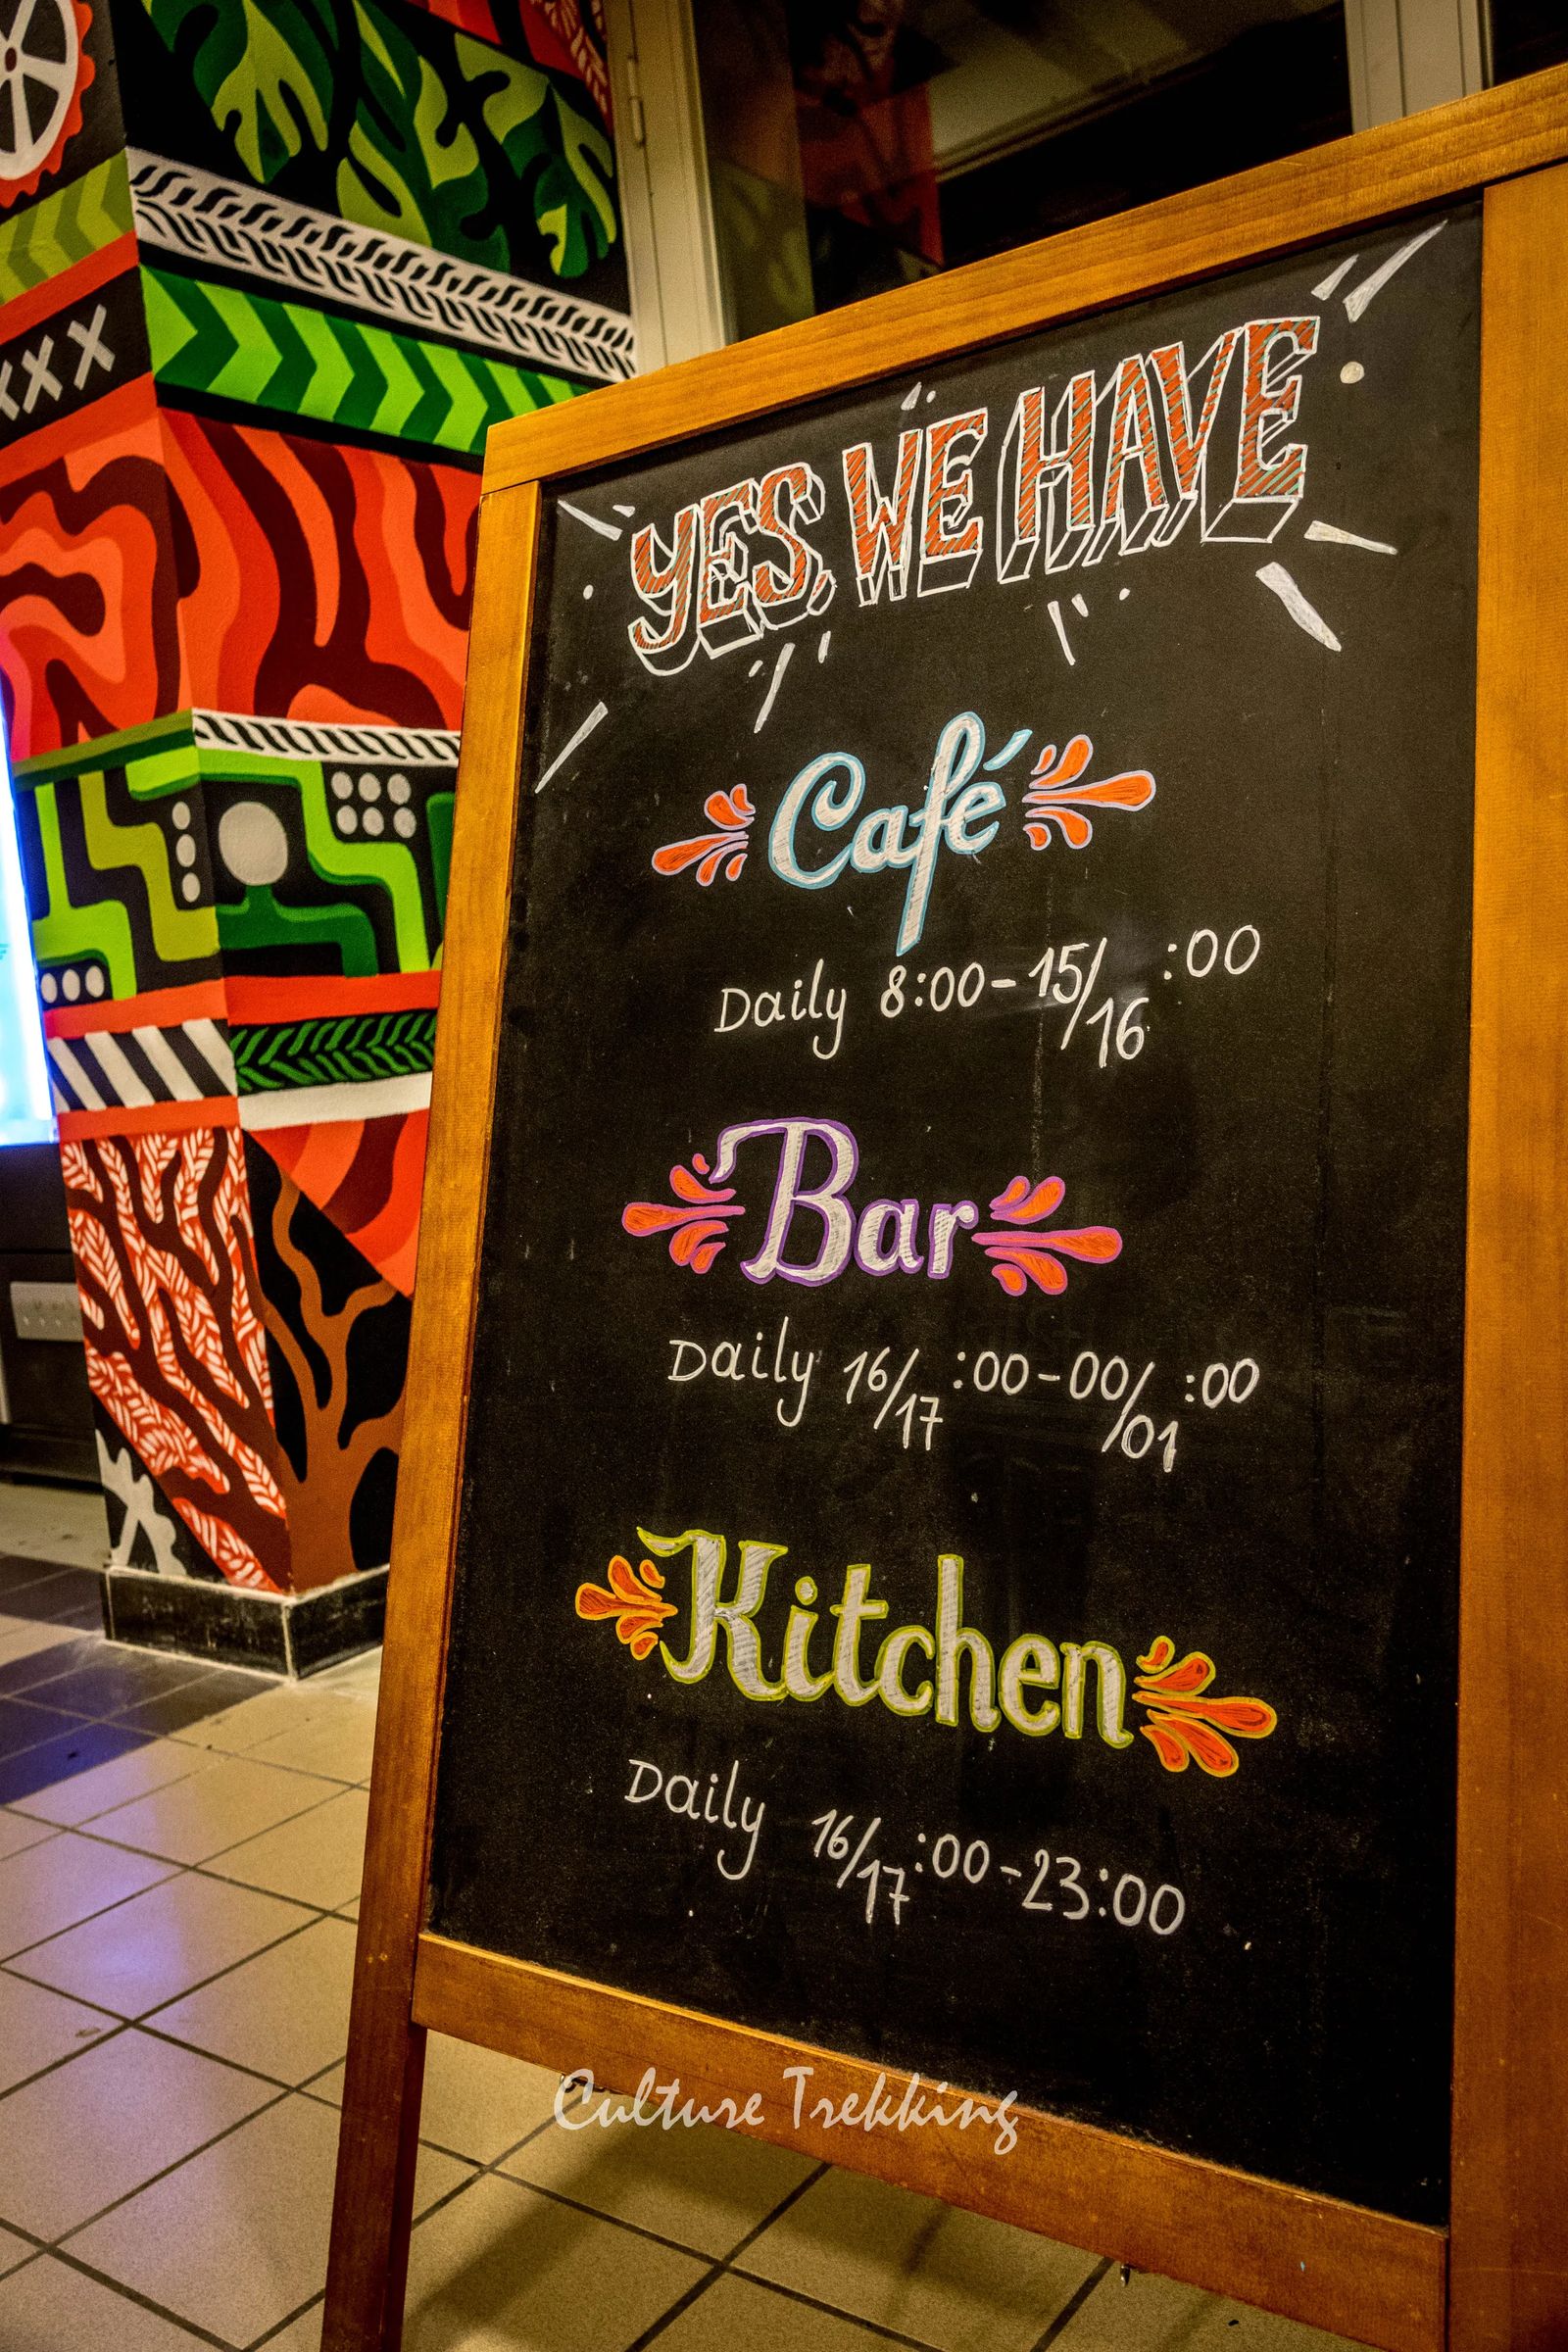 XXX
YES, WE HAVE
Café
Daily 8:00-15/16:00
Bar
Daily 16/17:00-00/01:00
Kitchen
Daily 16/17:00-23:00
Culture Trekking